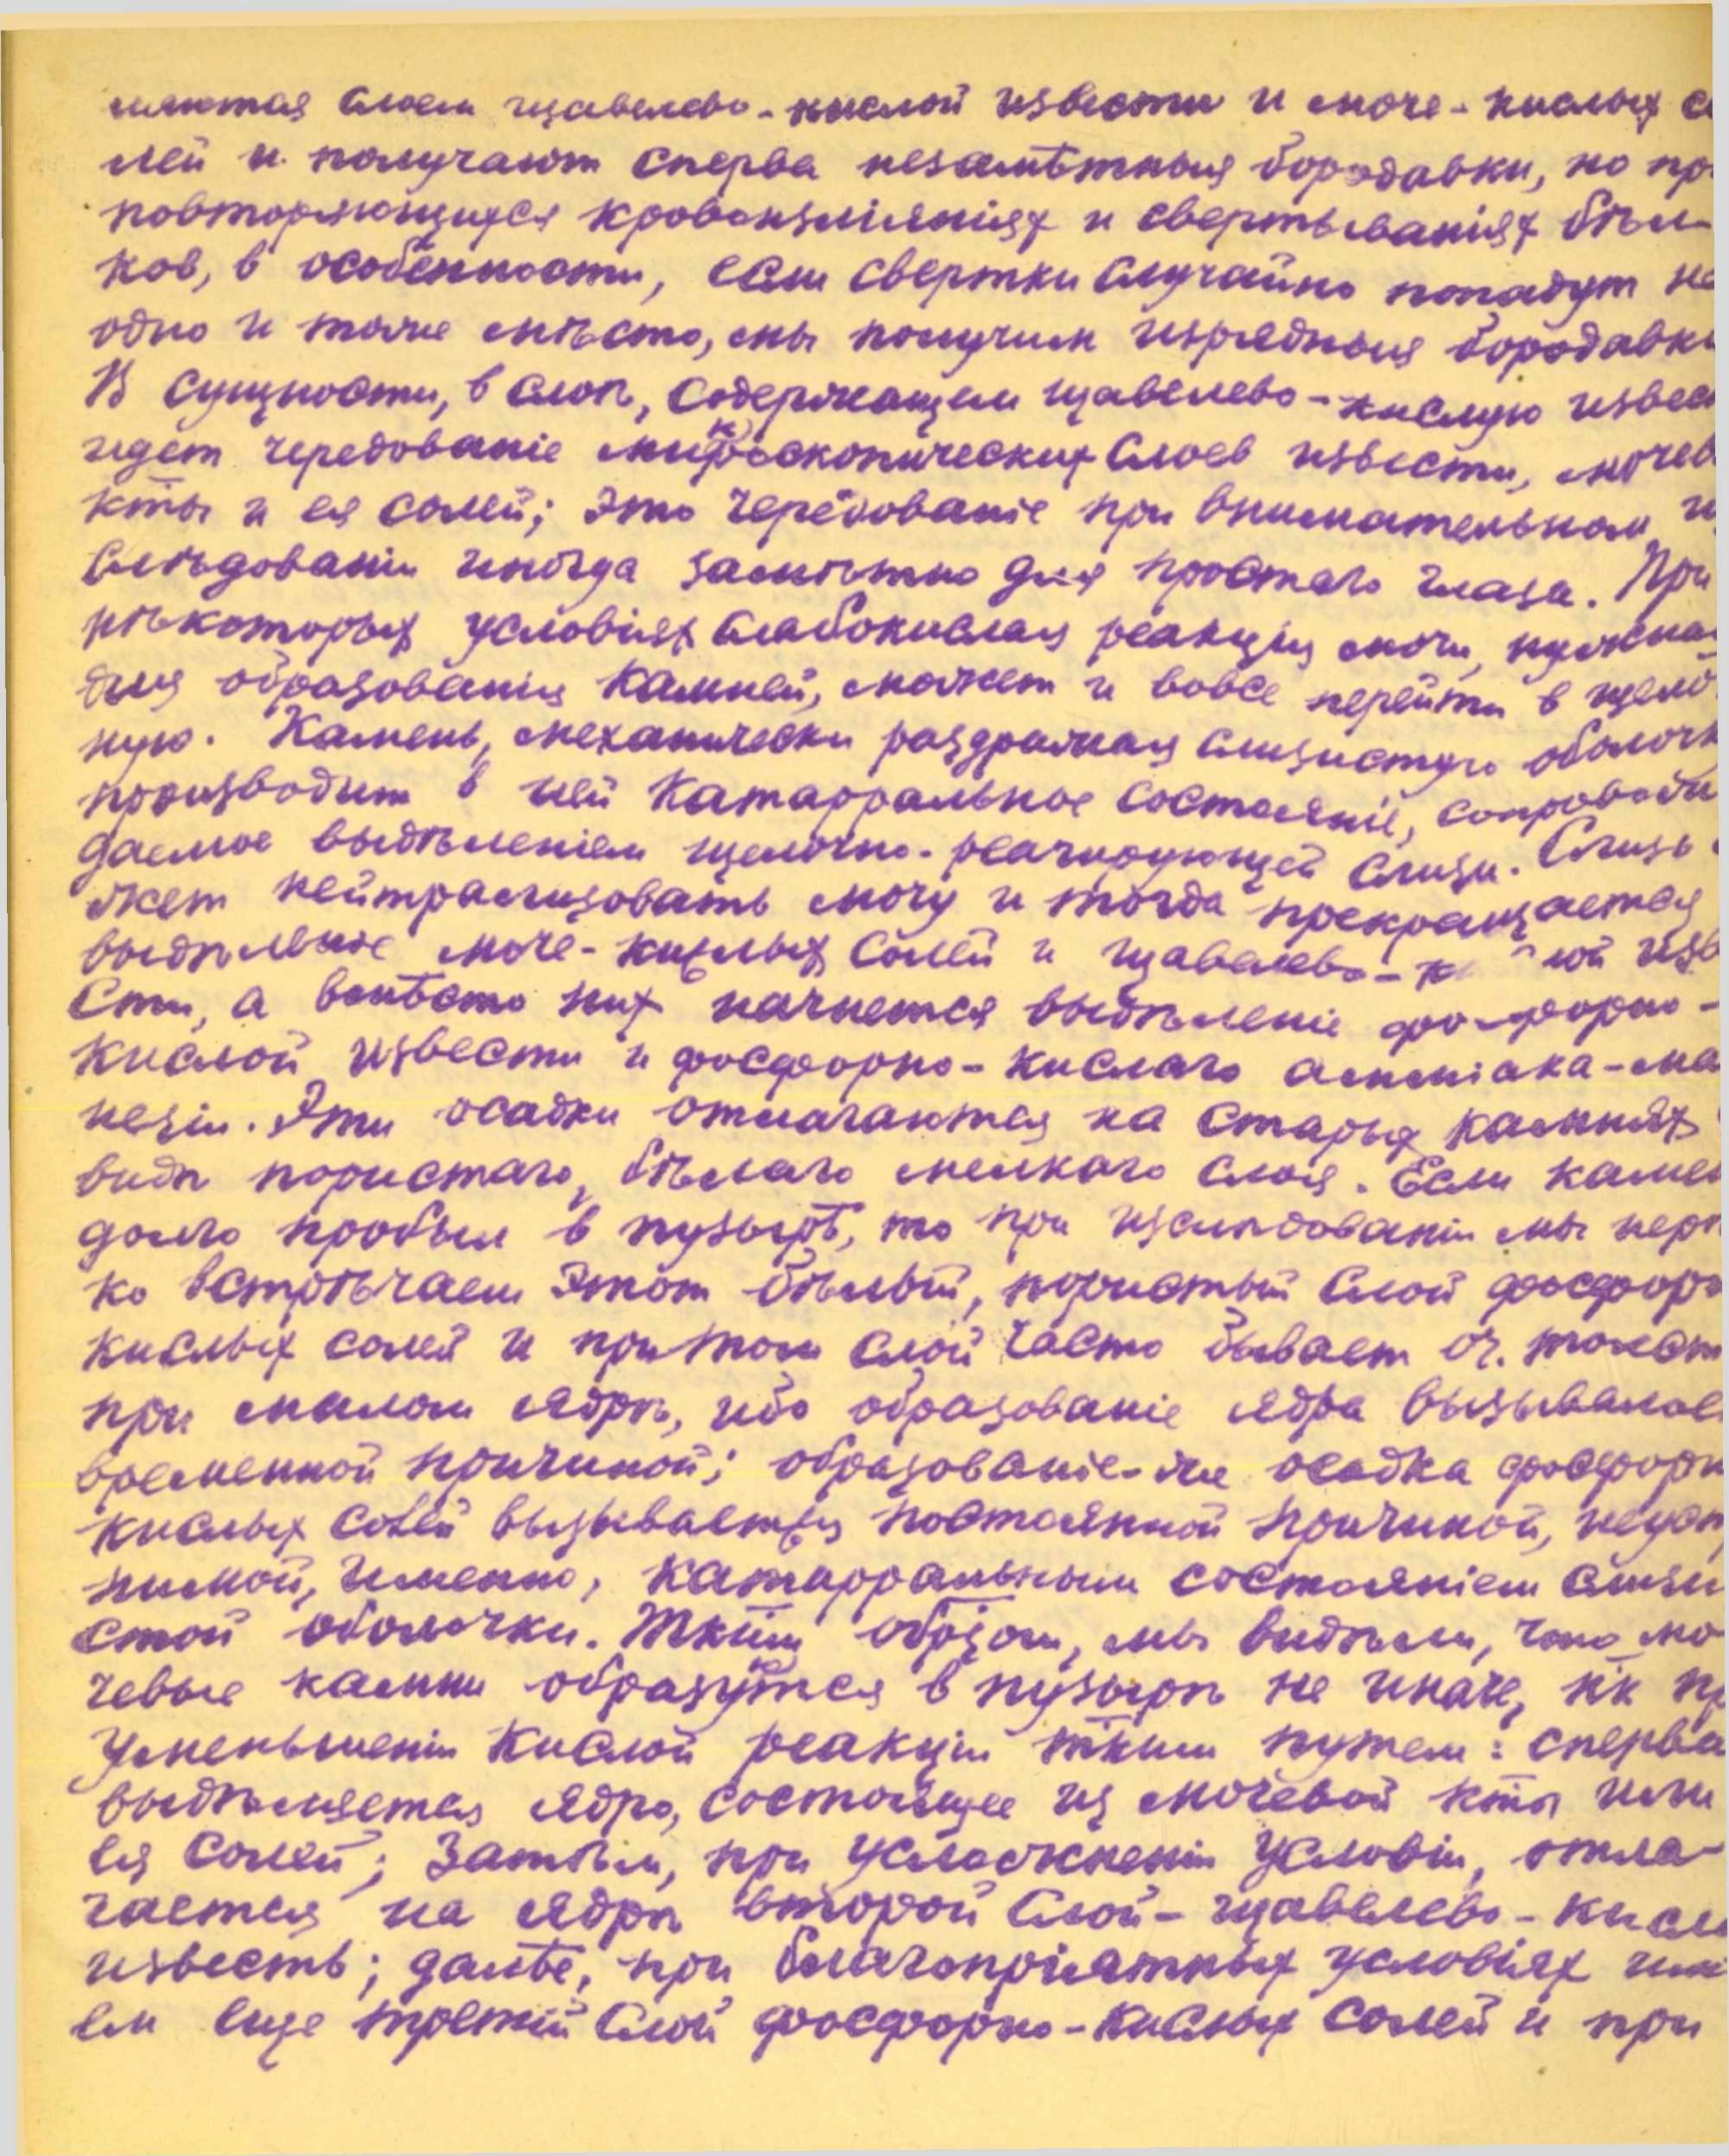 няются слоем щавелево-кислой извести и моче-кислых со
лей и получают сперва незамѣтныя бородавки, но при
повторяющихся кровоизліяніях и свертываніях бѣл-
ков, в особенности, если свертки случайно попадут на
одно и тоже мѣсто, мы получим изрядныя бородавки
В сущности, в слоѣ, содержащем щавелево-кислую извес
идет чередованіе микроскопических слоев извести, мочев
кты и ея солей; это чередованіе при внимательном и
слѣдованіи иногда замѣтно для простаго глаза. При
нѣкоторых условіях слабокислая реакція мочи, нужная
для образованія камней, может и вовсе перейти в щелоч
ную. Камень, механически раздражая слизистую оболочк
производит в ней катарральное состояніе, сопровож
даемое выдѣленіем щелочно-реагирующей слизи. Слизь
жет нейтрализовать мочу и тогда прекращается
выдѣленіе моче-кислых солей и щавелево-к лой изв
сти, а вмѣсто них начнется выдѣленіе фосфорно-
кислой извести и фосфорно-кислаго амміака-маг
незіи. Эти осадки отлагаются на старых камнях
видѣ пористаго, бѣлаго мелкаго слоя. Если камен
долго пробыл в пузырѣ, то при изслѣдованіи мы нерѣ
ко встрѣчаем этот бѣлый, пористый слой фосфорн
кислых солей и притом слой часто бывает оч. толст
при малом ядрѣ, ибо образованіе ядра вызывалос
временной причиной; образованіе-же осадка фосфорн
кислых солей вызывается постоянной причиной, неуст
нимой, именно, катарральным состояніем слизи
стой оболочки. Тким обрзом, мы видѣли, что мо
чевые камни образуются в пузырѣ не иначе, кк пр
уменьшеніи кислой реакціи тким путем: сперва
выдѣляется ядро, состоящее из мочевой кты или
ея солей; затѣм, при усложненіи условій, отла-
гается на ядрѣ второй слой - щавелево-кисл
известь; далѣе, при благопріятных условіях имѣ
ем еще третій слой фосфорно-кислых солей и при